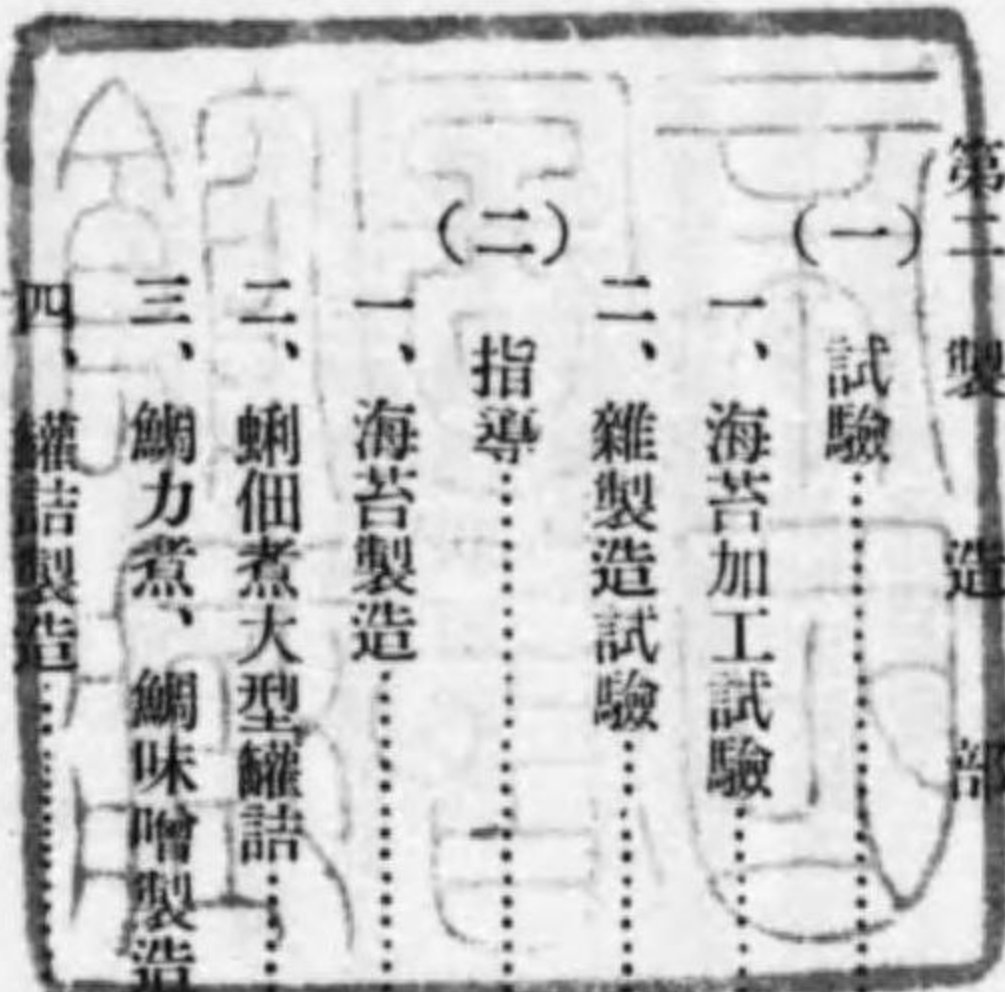 第二 製造部
(一) 試驗……
一、海苔加工試驗……
二、雜製造試驗……
(二) 指導……
一、海苔製造……
二、蜊佃煮大型罐詰……
三、鯛力煮、鯛味噌製造
四、罐詰製造……